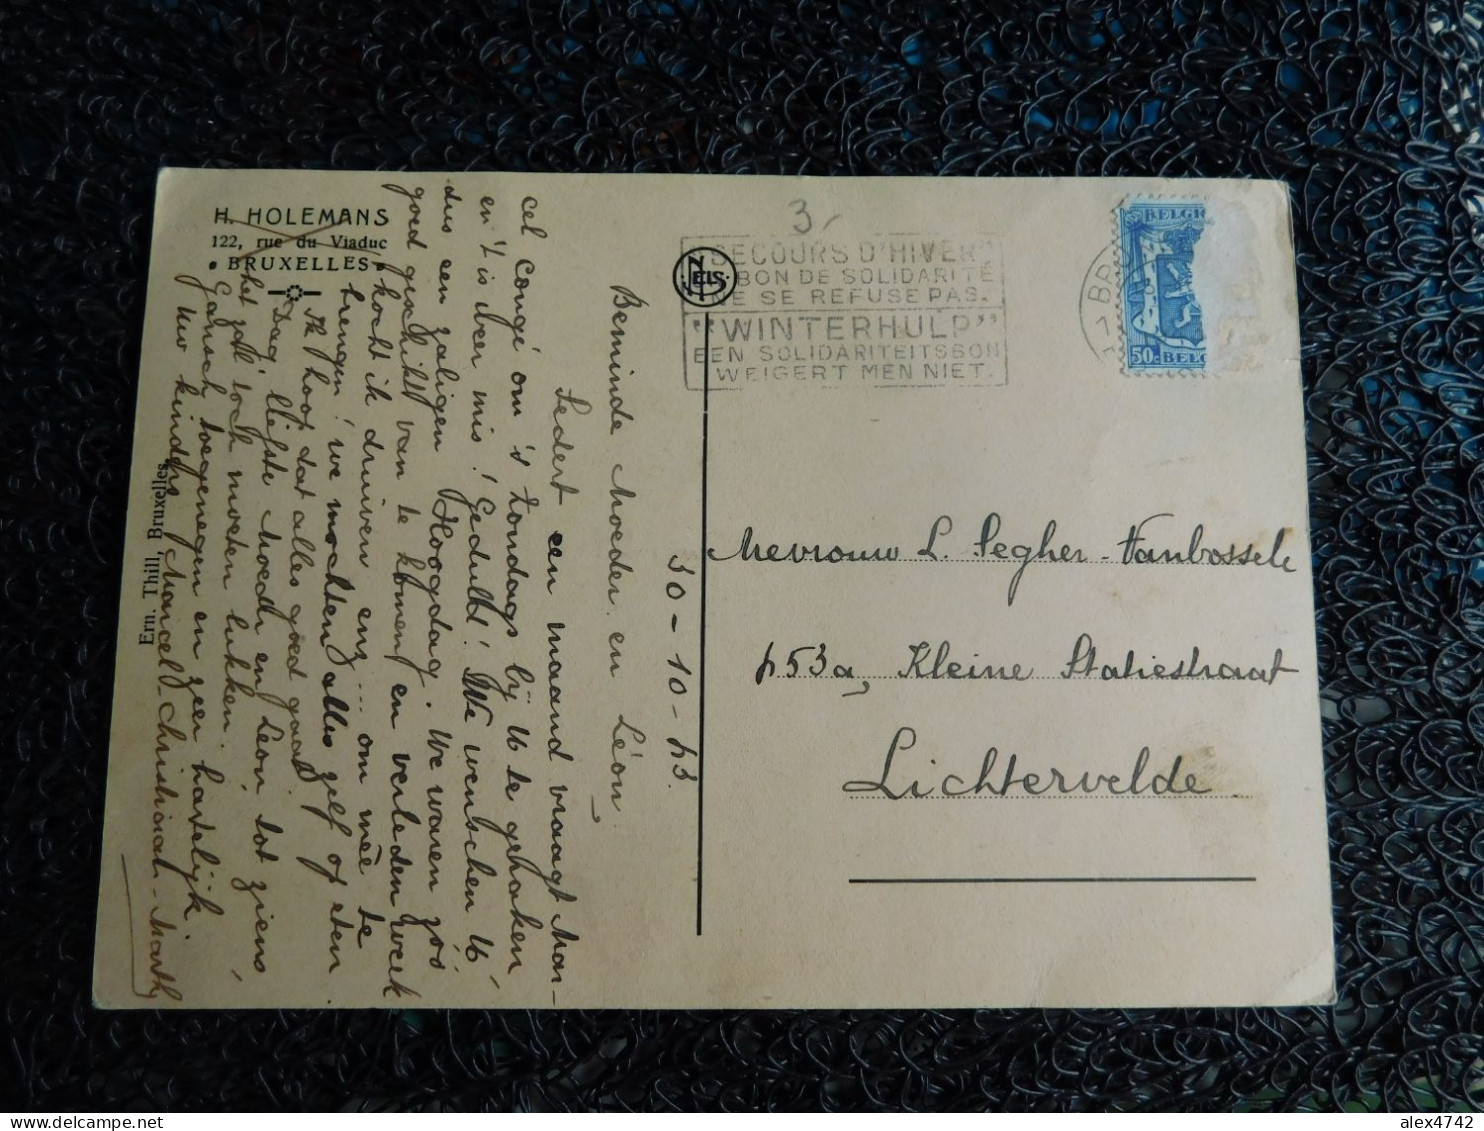 H. HOLEMANS
122, rue du Viaduc
• BRUXELLES •
Ern. Thill, Bruxelles.
NELS
3,-
"SECOURS D'HIVER"
BON DE SOLIDARITÉ
NE SE REFUSE PAS.
"WINTERHULP"
EEN SOLIDARITEITSBON
WEIGERT MEN NIET.
BR
BELGI
50c BELG
30-10-43.
Beminde Moeder en Léon,
Sedert een maand vraagt Mar-
cel Congé om 's Zondags bij U te geraken
en 't is weer mis! Geduld! We wenschen U
dus een zaligen Hoogdag. We waren zóó
goed geschikt van te komen en verleden week
kocht ik druiven enz... om mee te
brengen! we mochten alles zelf op eten.
Ik hoop dat alles goed gaat.
Dag, liefste Moeder en Leon, tot ziens,
het zal toch moeten lukken.
Gansch toegenegen en zeer hartelijk
Uw kinders Marcel-Christiane-Marthy
Mevrouw L. Segher-Vanbossele
453a, Kleine Statiestraat
Lichtervelde
alex4742